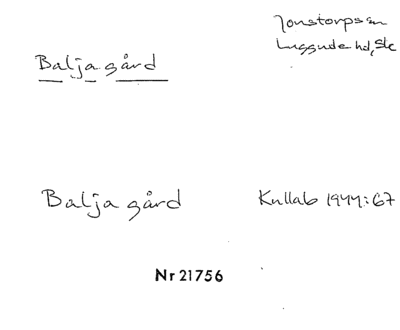 Jonstorps sn
Luggude hd, Sk
Balja gård
Balja gård
Kullab 1944:67
Nr 21756